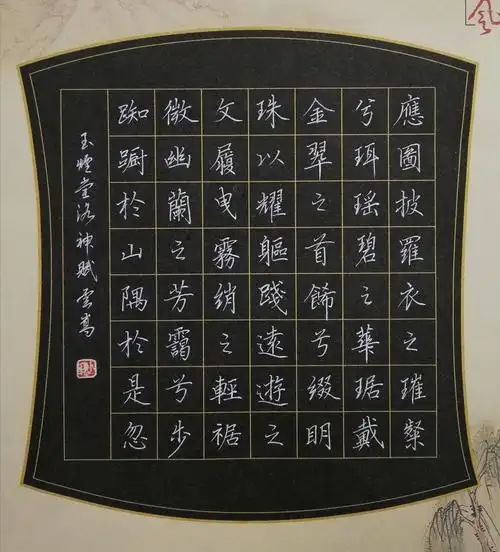 應圖披羅衣之璀粲
兮珥瑶碧之華琚戴
金翠之首飾兮綴明
珠以耀軀踐遠遊之
文履曳霧綃之輕裾
微幽蘭之芳靄兮步
踟蹰於山隅於是忽
玉煙堂洛神賦雲